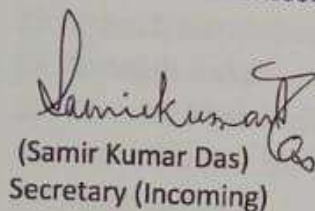 Samirkumar Das
(Samir Kumar Das)
Secretary (Incoming)